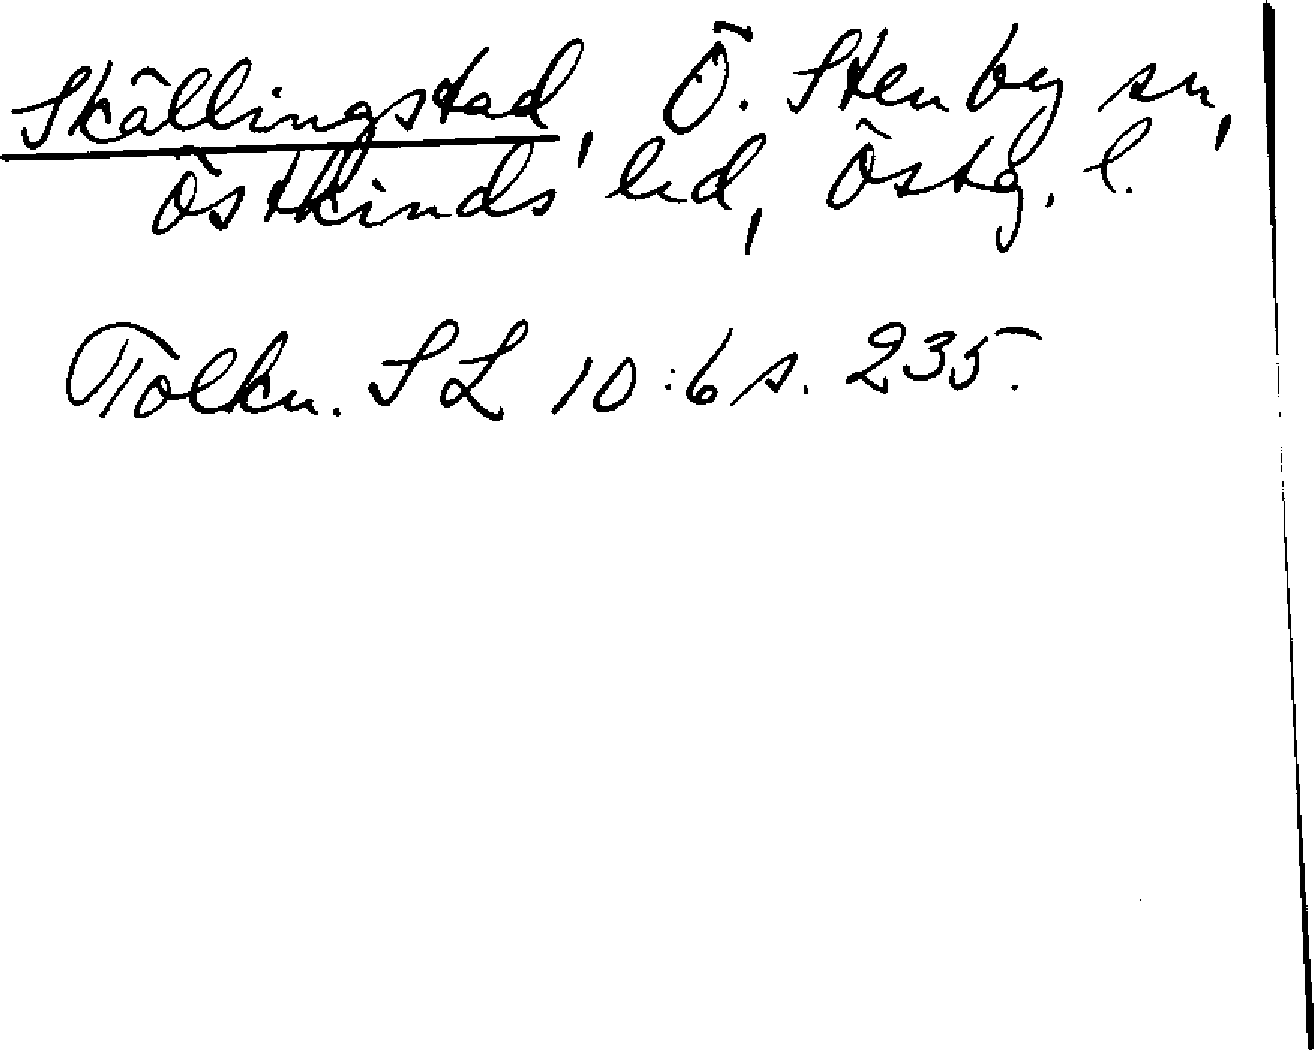 Skällingstad, Ö. Stenby sn,
Östkinds hd, Östg. l.
Tolkn. SL 10:6 s. 235.